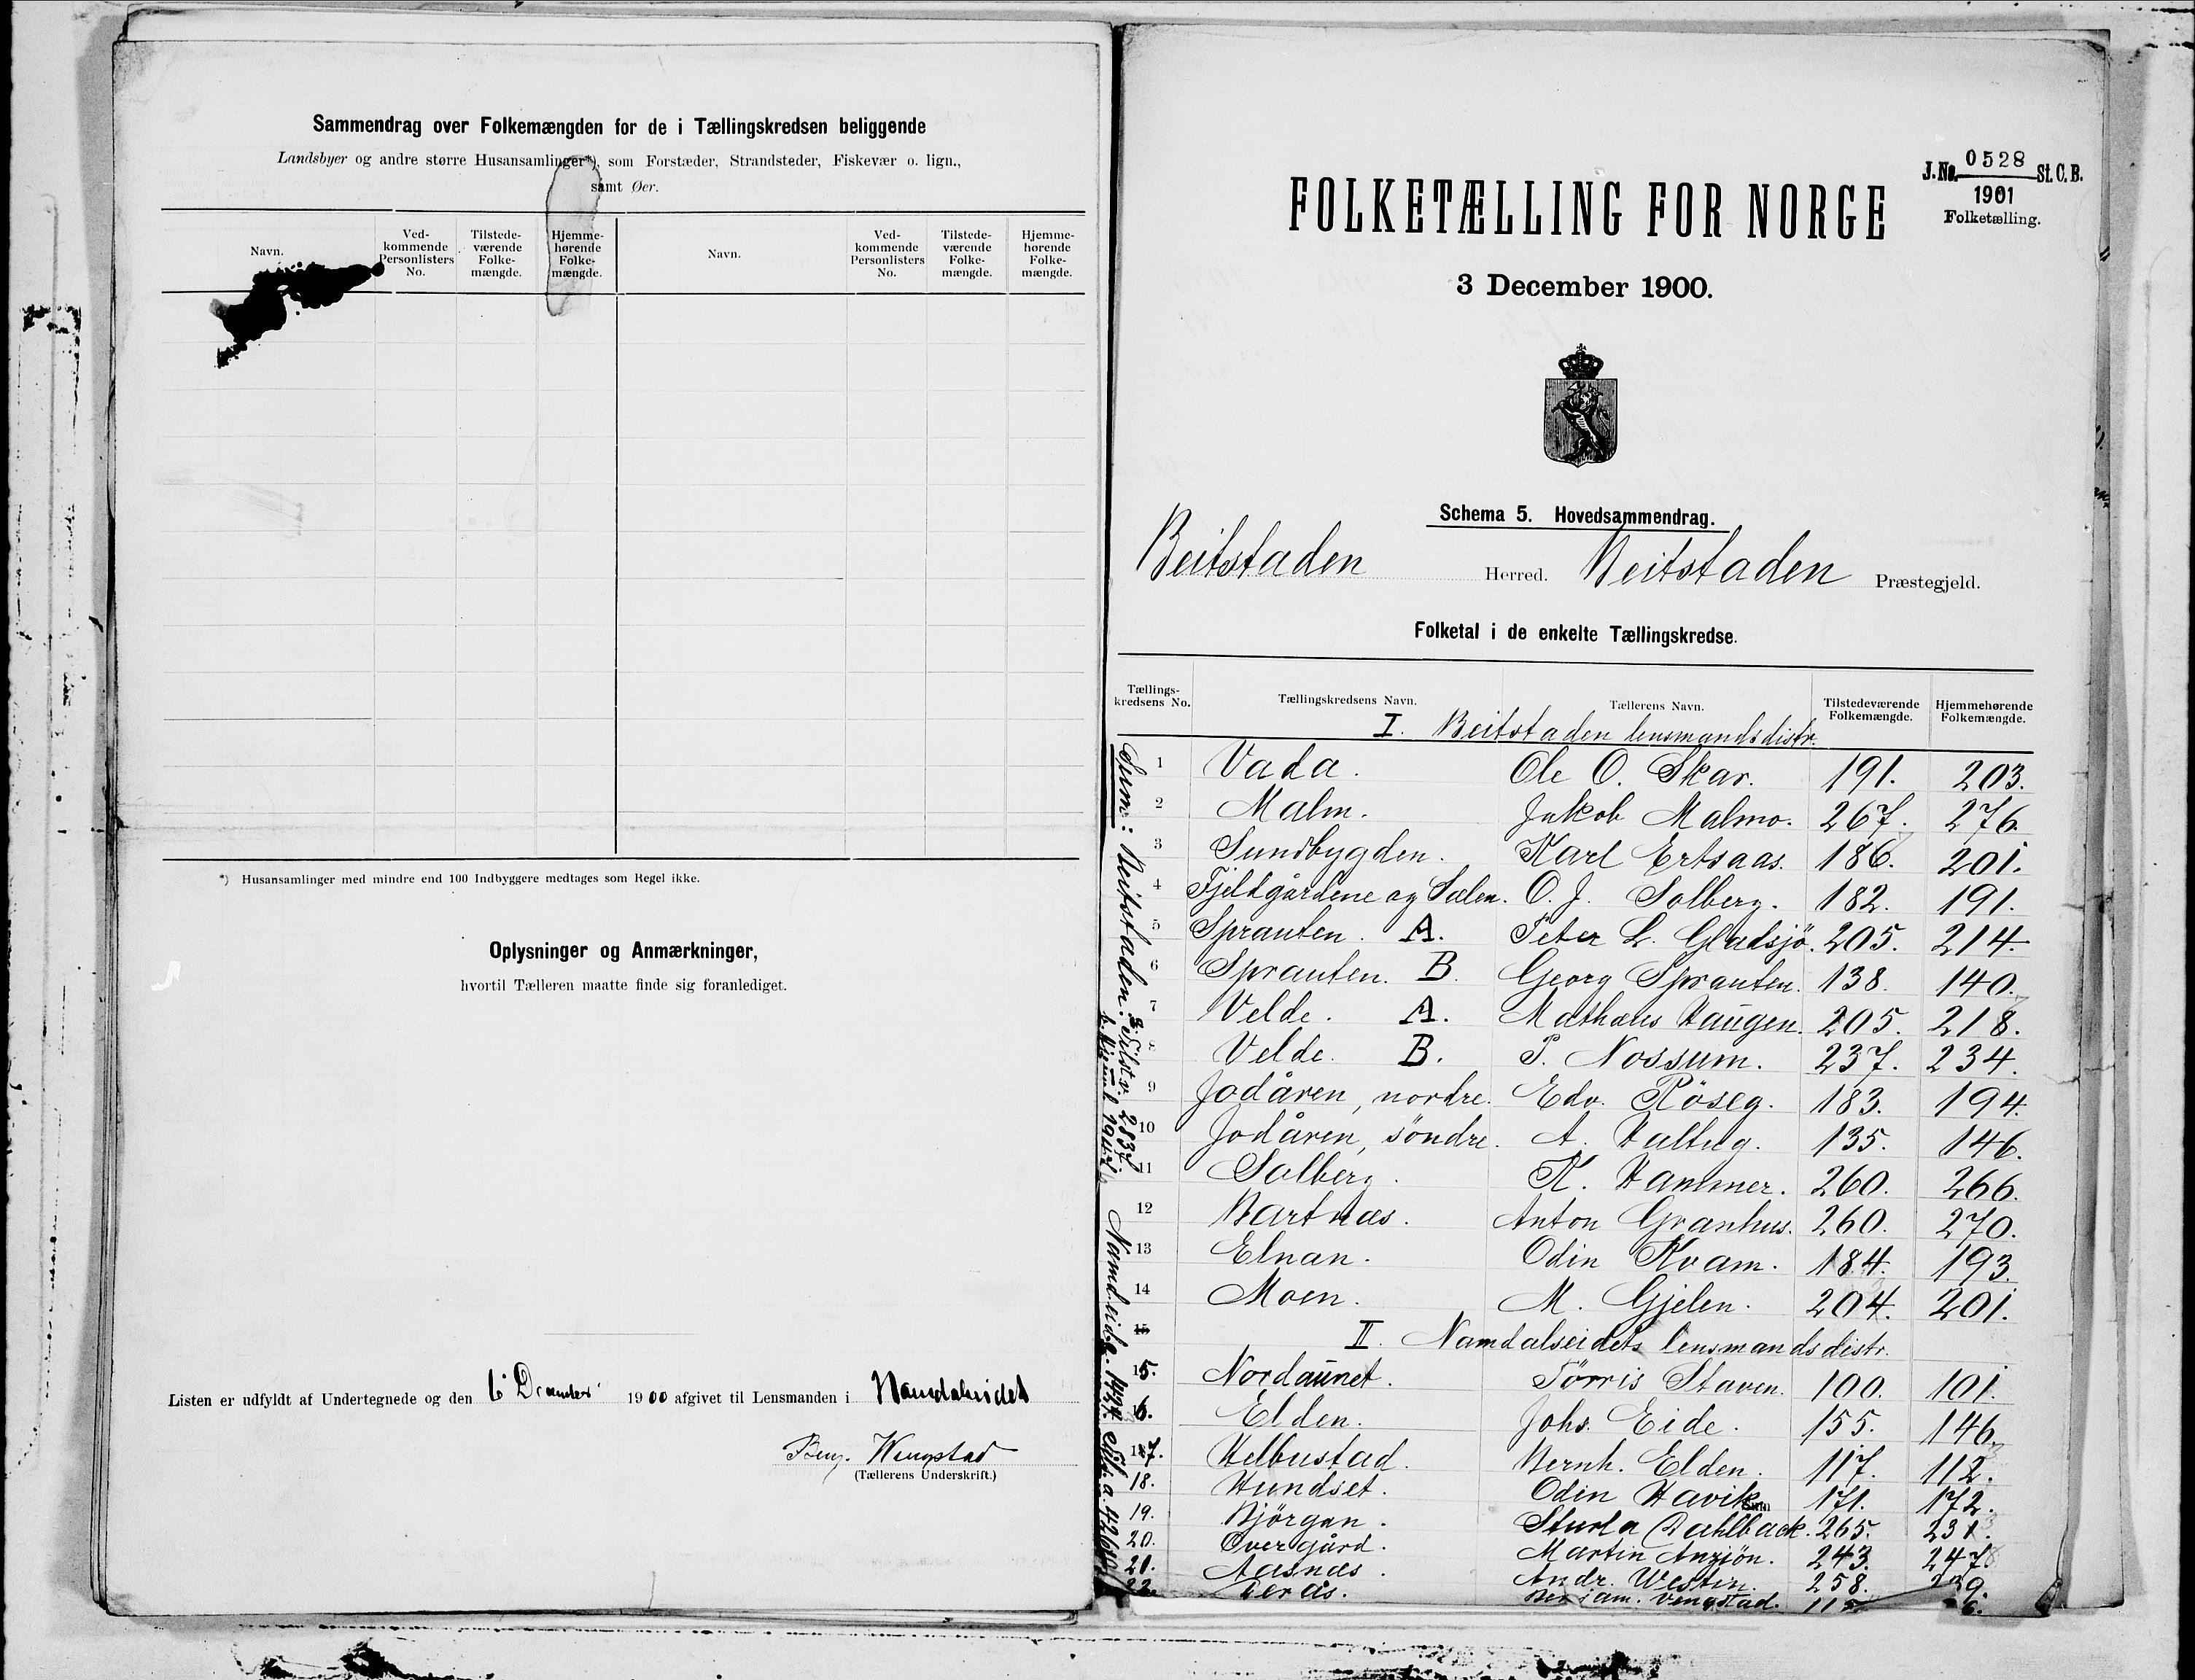 Sammendrag over Folkemængden for de i Tællingskredsen beliggende
Landsbyer og andre større Husansamlinger*), som Forstæder, Strandsteder, Fiskevær o. lign.,
samt Øer.
Navn. Ved-kommende Personlisters No. Tilstede-værende Folke-mængde. Hjemme-hørende Folke-mængde. Navn. Ved-kommende Personlisters No. Tilstede-værende Folke-mængde. Hjemme-hørende Folke-mængde.
*) Husansamlinger med mindre end 100 Indbyggere medtages som Regel ikke.
Oplysninger og Anmærkninger,
hvortil Tælleren maatte finde sig foranlediget.
Listen er udfyldt af Undertegnede og den 6 December 1900 afgivet til Lensmanden i Namdaleidet
Benj. Wengstad
(Tællerens Underskrift.)
J.No. 0528 St. C. B.
1901
Folketælling.
FOLKETÆLLING FOR NORGE
3 December 1900.
Schema 5. Hovedsammendrag.
Beitstaden Herred. Beitstaden Præstegjeld.
Folketal i de enkelte Tællingskredse.
Tællings-kredsens No. Tællingskredsens Navn. Tællerens Navn. Tilstedeværende Folkemængde. Hjemmehørende Folkemængde.
I. Beitstaden lensmandsdistr.
1 Vada. Ole O. Skar. 191. 203.
2 Malm. Jakob Malmo. 267. 276.
3 Sundbygden. Karl Ertsaas. 186. 201.
4 Fjeldgårdene og Sælen. O. J. Solberg. 182. 191.
5 Sprauten. A. Peter L. Gladsjö. 205. 214.
6 Sprauten. B. Georg Sprauten. 138. 140.
7 Velde. A. Mathæus Haugen. 205. 218.
8 Velde. B. P. Nossum. 237. 234.
9 Jådåren, nordre. Edv. Röseg. 183. 194.
10 Jådåren, söndre. A. Haltug. 135. 146.
11 Solberg. K. Hammer. 260. 266.
12 Bartnæs. Anton Granhus. 260. 270.
13 Elnan. Odin Kvam. 184. 193.
14 Moen. M. Gjelen. 204. 201.
15
II. Namdalseidets lensmandsdistr.
15. Nordaunet. Tørris Staven. 100. 101.
16. Elden. Johs. Eide. 155. 146.
17. Helbustad. Bernh. Elden. 117. 112.
18. Hundset. Odin Havik 171. 172.
Sum
19. Björgan. Sturla Dahlback. 265. 231.
20. Overgård. Martin Anzjön. 243. 247
21. Aasnæs. Andr. Westin. 258. 239.
22. Derås. Benjam. Vengstad.
Sum: Beitstaden: Tilst. 2837